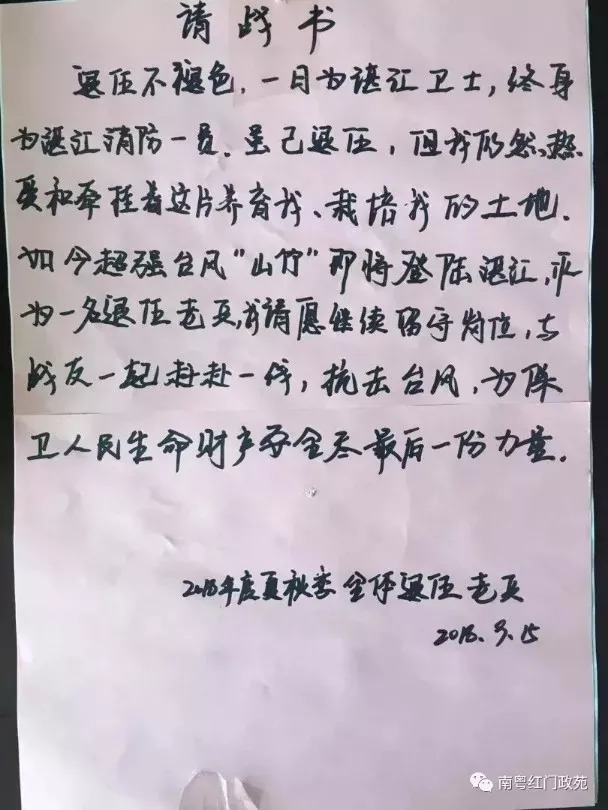 请战书
退伍不褪色，一日为湛江卫士，终身
为湛江消防一员。虽已退伍，但我仍然热
爱和牵挂着这片养育我、栽培我的土地。
如今超强台风“山竹”即将登陆湛江，作
为一名退伍老兵，我请愿继续留守岗位，与
战友一起赶赴一线，抗击台风，为保
卫人民生命财产安全尽最后一份力量。
2018年度夏秋季全体退伍老兵
2018.9.15
南粤红门政苑